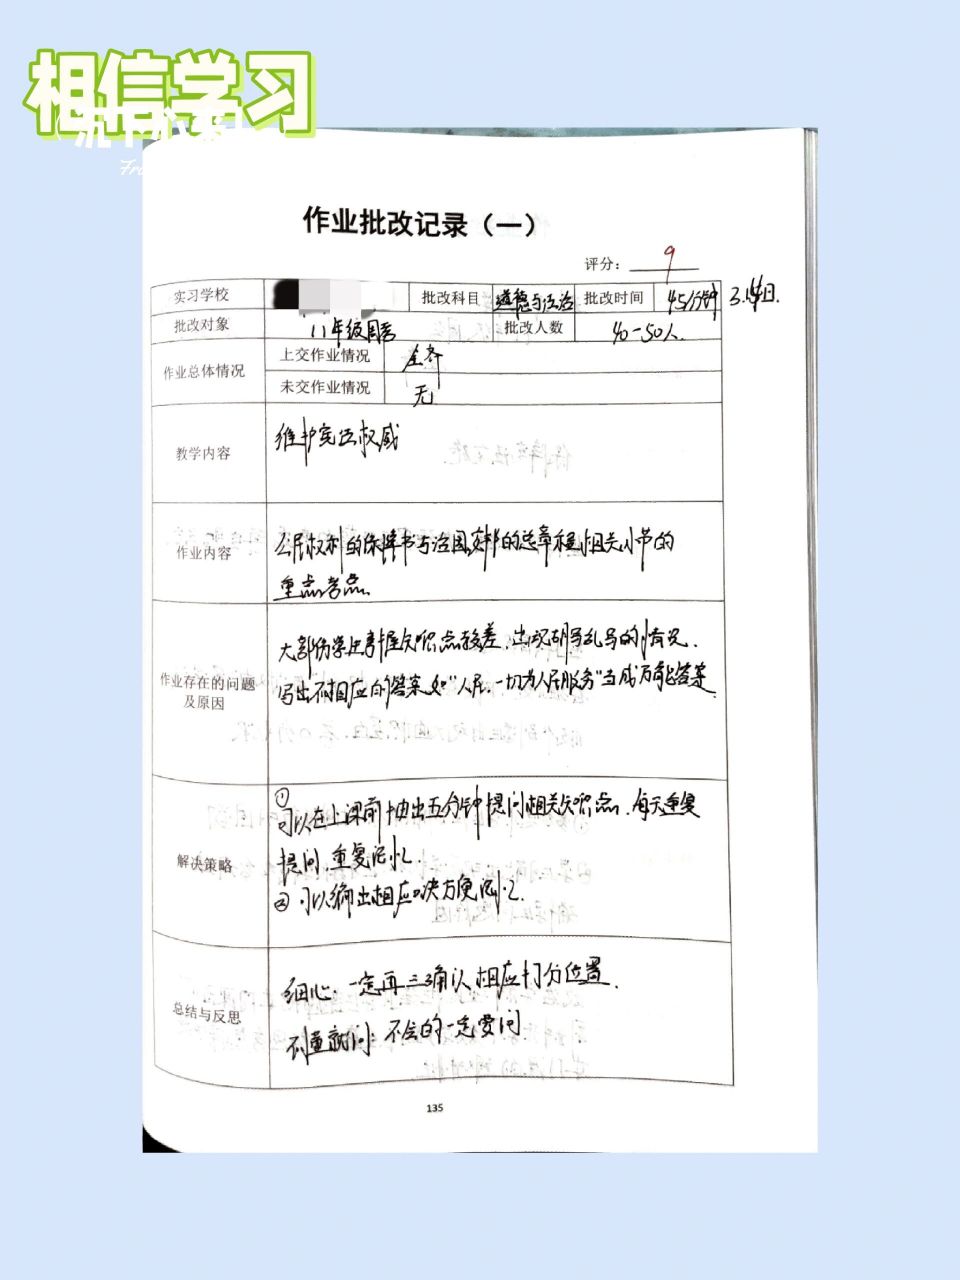 相信学习
作业批改记录（一）
评分：9
实习学校 批改科目 道德与法治 批改时间 45分钟 3.
批改对象 八年级周考 批改人数 40-50人
作业总体情况 上交作业情况 全齐
未交作业情况 无
教学内容 维护宪法权威
作业内容 公民权利的保障书与治国安邦的总章程相关小节的
重点考点
作业存在的问题及原因 大部份学生掌握知识点较差，出现胡写乱写的情况.
写出不相应的答案如"人民，一切为人民服务"当成万能答案
解决策略 ①可以在上课前抽出五分钟提问相关知识点，每天重复
提问，重复记忆.
②可以编出相应口诀方便记忆.
总结与反思 细心：一定再三确认相应打分位置.
不懂就问：不会的一定要问
135